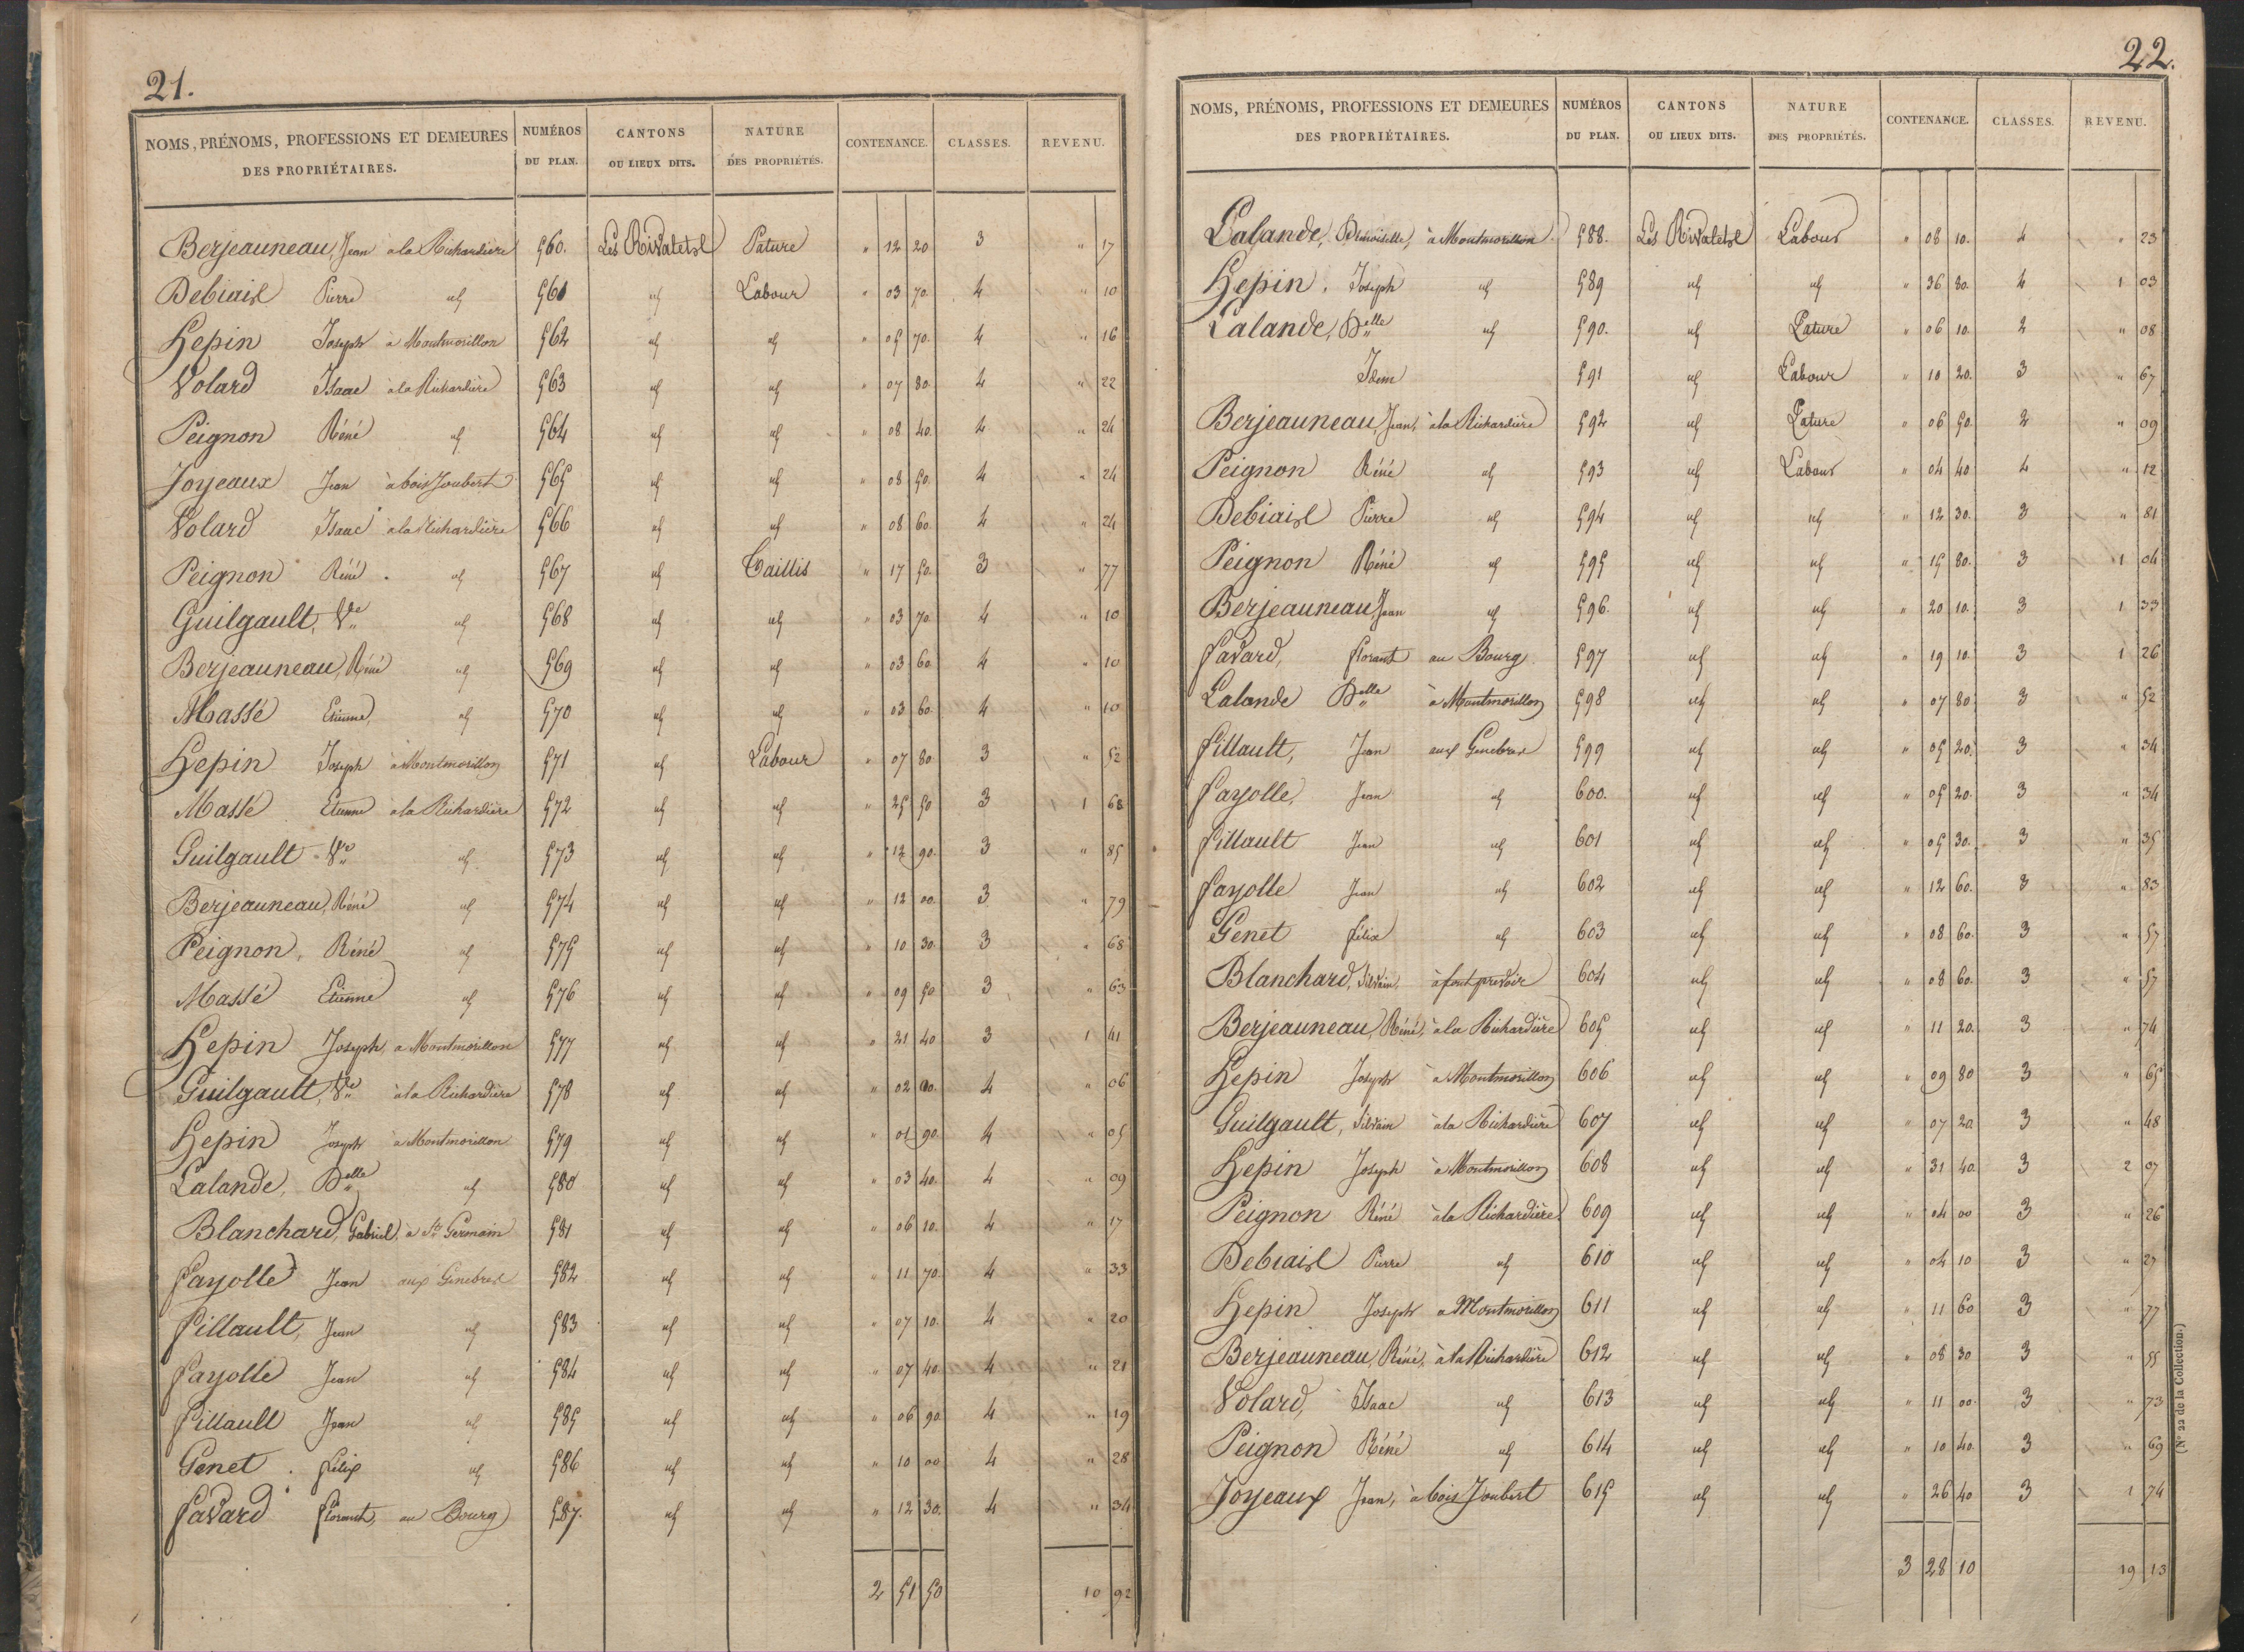 21.
NOMS, PRÉNOMS, PROFESSIONS ET DEMEURES DES PROPRIÉTAIRES. NUMÉROS DU PLAN. CANTONS OU LIEUX DITS. NATURE DES PROPRIÉTÉS. CONTENANCE. CLASSES. REVENU.
Berjeauneau, Jean à la Richardière 560. Les Rivalets Pature " 12 20 3 " 17
Debiais Pierre id 561 id Labour " 03 70. 4 " 10
Hepin Joseph à Montmorillon 562 id id " 05 70. 4 " 16
Volard Isaac à la Richardière 563 id id " 07 80. 4 " 22
Peignon Réné id 564 id id " 08 40. 4 " 24
Joyeaux Jean à bois Joubert 565 id id " 08 50. 4 " 24
Volard Isaac à la Richardière 566 id id " 08 60. 4 " 24
Peignon Réné id 567 id Taillis " 17 50. 3 " 77
Guilgault, Ve id 568 id id " 03 70. 4 " 10
Berjeauneau, Réné id 569 id id " 03 60. 4 " 10
Massé Etienne, id 570 id id " 03 60. 4 " 10
Hepin Joseph à Montmorillon 571 id Labour " 07 80. 3 " 52
Massé Etienne à la Richardière 572 id id " 25 50 3 1 68
Guilgault Ve id 573 id id " 12 90. 3 " 85
Berjeauneau, Réné id 574 id id " 12 00. 3 " 79
Peignon, Réné id 575 id id " 10 30. 3 " 68
Massé Etienne id 576 id id " 09 50 3 " 63
Hepin Joseph, a Montmorillon 577 id id " 21 40 3 1 41
Guilgault, Ve à la Richardière 578 id id " 02 00. 4 " 06
Hepin Joseph à Montmorillon 579 id id " 01 90. 4 " 05
Lalande, Delle id 580 id id " 03 40. 4 " 09
Blanchard, Gabriel, à St Germain 581 id id " 06 10. 4 " 17
Fayolle Jean aux Genebres 582 id id " 11 70. 4 " 33
Fillault, Jean id 583 id id " 07 10. 4 " 20
Fayolle Jean id 584 id id " 07 40. 4 " 21
Fillault Jean id 585 id id " 06 90. 4 " 19
Genet Félix id 586 id id " 10 00 4 " 28
Favard Florant, au Bourg 587. id id " 12 30. 4 " 34
2 51 50 10 92
22.
NOMS, PRÉNOMS, PROFESSIONS ET DEMEURES DES PROPRIÉTAIRES. NUMÉROS DU PLAN. CANTONS OU LIEUX DITS. NATURE DES PROPRIÉTÉS. CONTENANCE. CLASSES. REVENU.
Lalande, Demoiselle, à Montmorillon. 588. Les Rivalets Labour " 08 10. 4 " 23
Hepin, Joseph id 589 id id " 36 80. 4 1 03
Lalande, Delle id 590. id Pature " 06 10. 2 " 08
Idem 591 id Labour " 10 20. 3 " 67
Berjeauneau, Jean, à la Richardière 592 id Pature " 06 50. 2 " 09
Peignon Réné id 593 id Labour " 04 40 4 " 12
Debiais Pierre id 594 id id " 12 30. 3 " 81
Peignon Réné id 595 id id " 15 80. 3 1 04
Berjeauneau, Jean id 596. id id " 20 10. 3 1 33
Favard, Florant au Bourg. 597 id id " 19 10. 3 1 26
Lalande Delle à Montmorillon 598 id id " 07 80. 3 " 52
Fillault, Jean aux Genebres 599 id id " 05 20. 3 " 34
Fayolle, Jean id 600. id id " 05 20. 3 " 34
Fillault Jean id 601 id id " 05 30. 3 " 35
Fayolle Jean id 602 id id " 12 60. 3 " 83
Genet Félix id 603 id id " 08 60. 3 " 57
Blanchard, Silvain, à font prevoir 604 id id " 08 60. 3 " 57
Berjeauneau, Réné, à la Richardière 605 id id " 11 20. 3 " 74
Hepin Joseph à Montmorillon 606 id id " 09 80 3 " 65
Guilgault, Silvain à la Richardière 607 id id " 07 20 3 " 48
Hepin Joseph à Montmorillon 608 id id " 31 40. 3 2 07
Peignon Réné à la Richardière 609 id id " 04 00 3 " 26
Debiais Pierre id 610 id id " 04 10 3 " 27
Hepin Joseph a Montmorillon 611 id id " 11 60 3 " 77
Berjeauneau, Réné, à la Richardière 612 id id " 08 30 3 " 55
Volard, Isaac id 613 id id " 11 00. 3 " 73
Peignon Réné id 614 id id " 10 40. 3 " 69
Joyeaux Jean, à bois Joubert 615 id id " 26 40 3 1 74
3 28 10 19 13
(N° 22 de la Collection.)